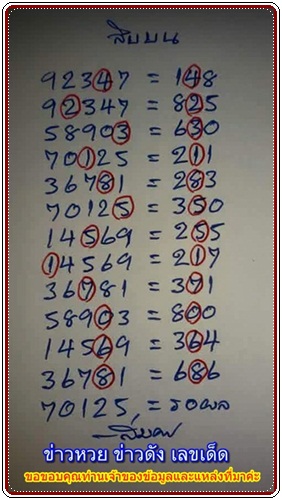 สิบบน
92347 = 148
92347 = 825
58903 = 630
70125 = 211
36781 = 283
70125 = 350
14569 = 255
14569 = 217
36781 = 371
58903 = 800
14569 = 364
36781 = 686
70125 = รอผล
ข่าวหวย ข่าวดัง เลขเด็ด
ขอขอบคุณท่านเจ้าของข้อมูลและแหล่งที่มาค่ะ